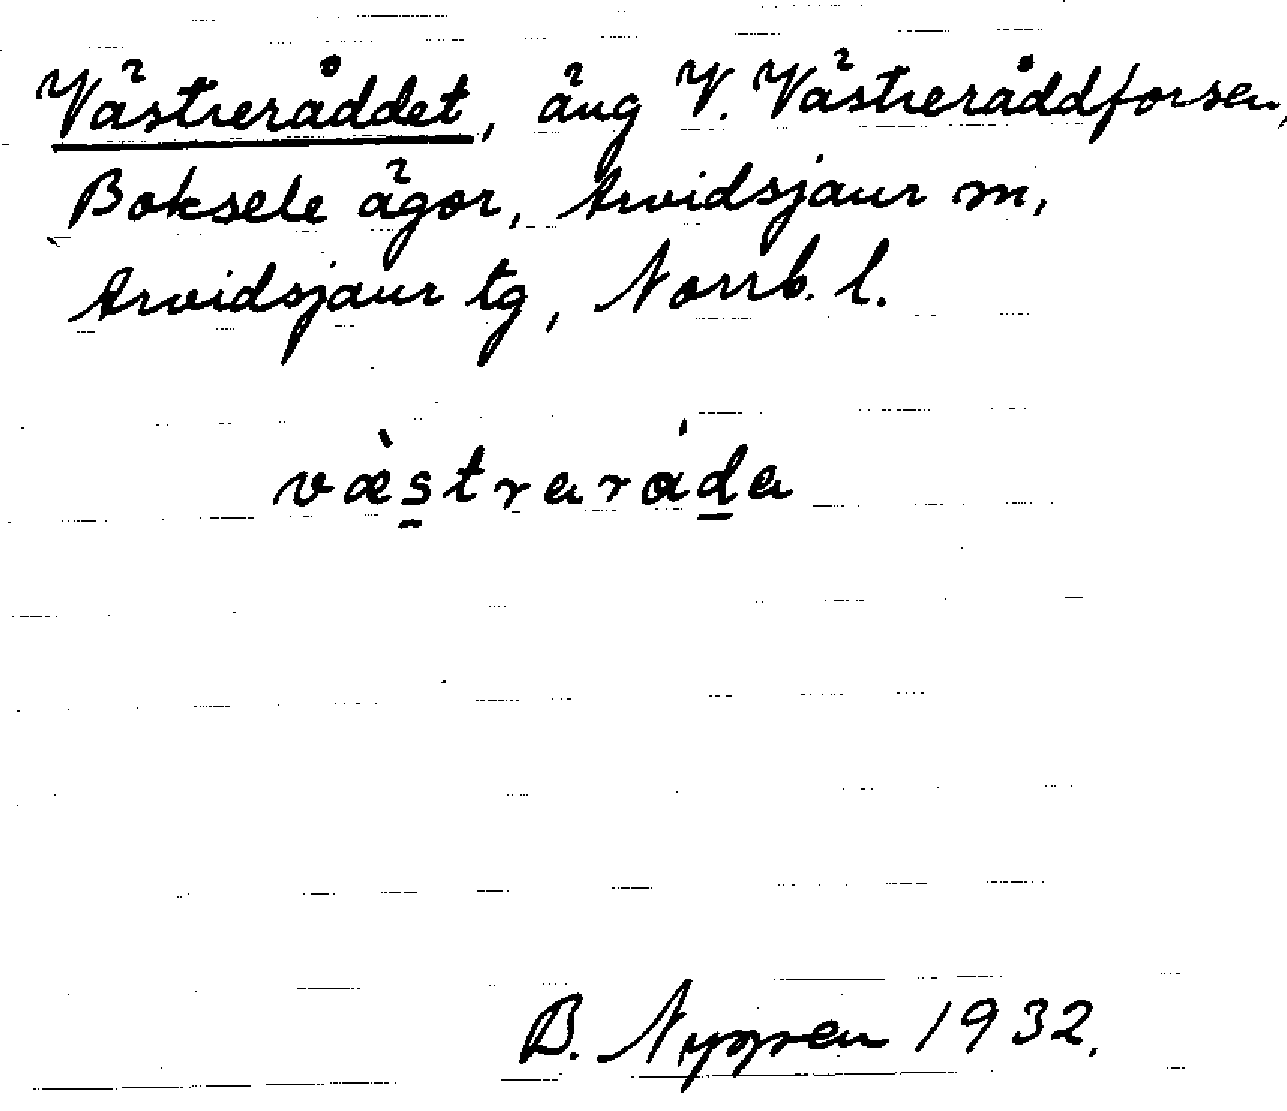 Västeråddet, äng V. Västeråddforsen,
Boksele ägor, Arvidsjaur sn,
Arvidsjaur tg, Norrb. l.
væ̀straráda
B. 1932.